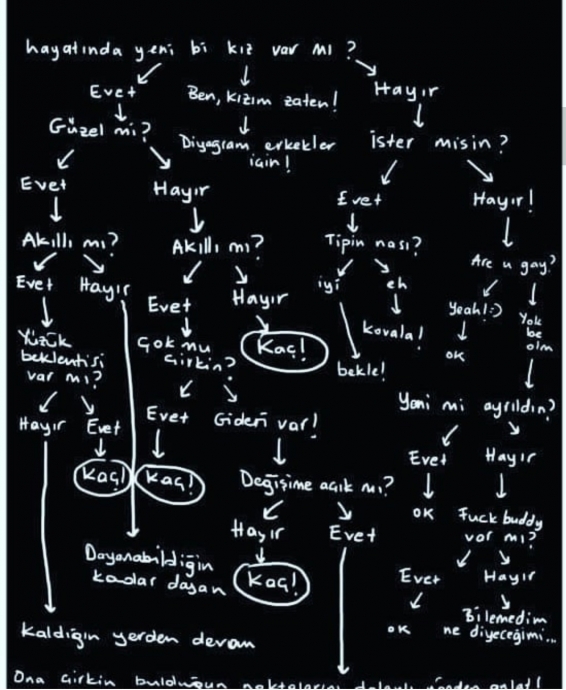 hayatında yeni bi kız var mı ?
Evet
Ben, kızım zaten!
Hayır
Güzel mi?
Diyagram erkekler
için!
İster misin ?
Evet
Hayır
Evet
Hayır!
Akıllı mı?
Akıllı mı?
Tipin nası?
Are u gay?
Evet
Hayır
Evet
Hayır
iyi
eh
Yeah!:)
Yok
be
olm
Yüzük
beklentisi
var mı?
Çok mu
Çirkin?
Kaç!
Kovala!
bekle!
OK
Yeni mi ayrıldın?
Hayır
Evet
Evet
Gideri var!
Evet
Hayır
Kaç!
Kaç!
Değişime açık mı?
OK
Fuck buddy
var mı?
Hayır
Evet
Dayanabildiğin
kadar dayan
Kaç!
Evet
Hayır
OK
Bilemedim
ne diyeceğimi...
Kaldığın yerden devam
Ona Çirkin bulduğun noktalarını dolaylı yönden anlat!